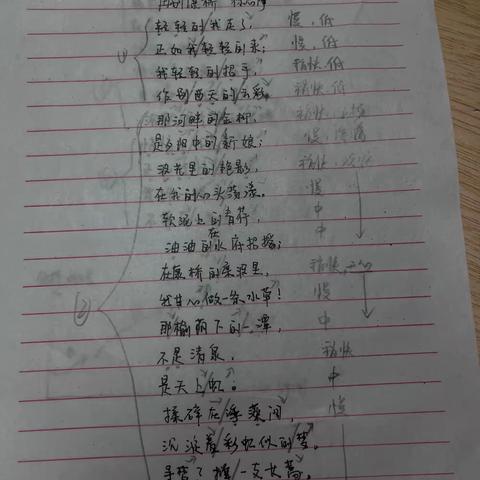 再别康桥 徐志摩
轻轻的我走了, 慢,低
正如我轻轻的来; 慢,低
① 我轻轻的招手, 稍快,低
作别西天的云彩。 稍快,低
那河畔的金柳, 稍快,
是夕阳中的新娘; 慢,
波光里的艳影, 稍快,
在我的心头荡漾。 慢
软泥上的青荇, 中
油油的在水底招摇; 中
在康桥的柔波里, 稍快,
② 我甘心做一条水草! 慢
那榆荫下的一潭, 中
不是清泉, 稍快
是天上虹。 中
揉碎在浮藻间, 慢
沉淀着彩虹似的梦。
寻梦?撑一支长篙,